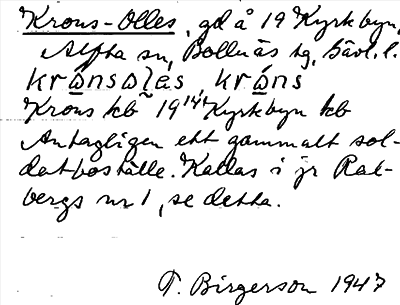 Krons-Olles, gd å 19 Kyrkbyn,
Alfta sn, Bollnäs tg, Gävl. l.
krånsolas, kråns
Krons kb 19 14/4 Kyrkbyn kb
Antagligen ett gammalt sol-
datboställe. Kallas i jr Rak-
bergs nr 1, se detta.
T. Birgerson 1947